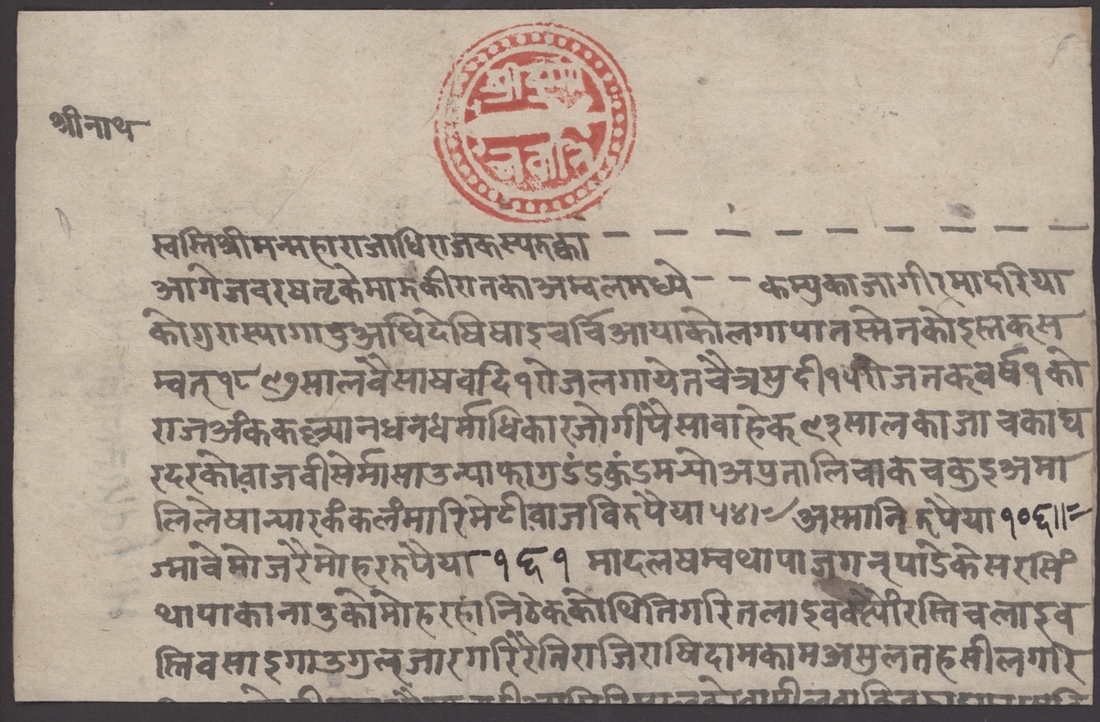 श्रीदुर्गा
भवानि
श्रीनाथ
स्वस्तिश्रीमन्महाराजाधिराजकस्यरुक्का
आगेजवरषनृकेमारुकीरातकाअम्बलमध्ये कम्पुकाजागीरमादरिया
कोग्रास्यागाउअघिदेषिषाइचर्चिआयाकोलगापातस्मेतकोइस्तकस
म्वत्१८९७सालवैसाषवदि१रोजलगायेतचैत्रसुदी१५रोजतकवर्ष१को
राजअंककल्यानधनधर्माधिकारजोगीपैसावाहेक९३सालकाजाचकाघ
रदरकोवाजवीसेर्मासाउन्याफागुडंडकुंडमर्‍योअपुतालिचाकचकुइअमा
लिलेषान्यारकंकलंमारिमेटीवाजविरुपैया५४।अस्मानिरुपैया१०६॥
ग्मावेमोजरैमोहररुपैया १६१ मादलषम्वथापाजगनुपाडेकेसरसिं
थापाकानाउकोमोहरहानिठेककोथितिगरितलाइवक्स्यौरस्तिचलाइव
स्तिवसाइगाउगुल्जारगरिरैतिराजिराषिदामकामअमुलतहसीलगरि